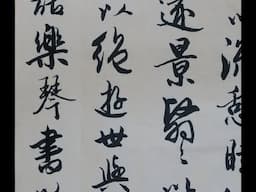 以流憩時
還景翳々以
以絕遊世與
話樂琴書以